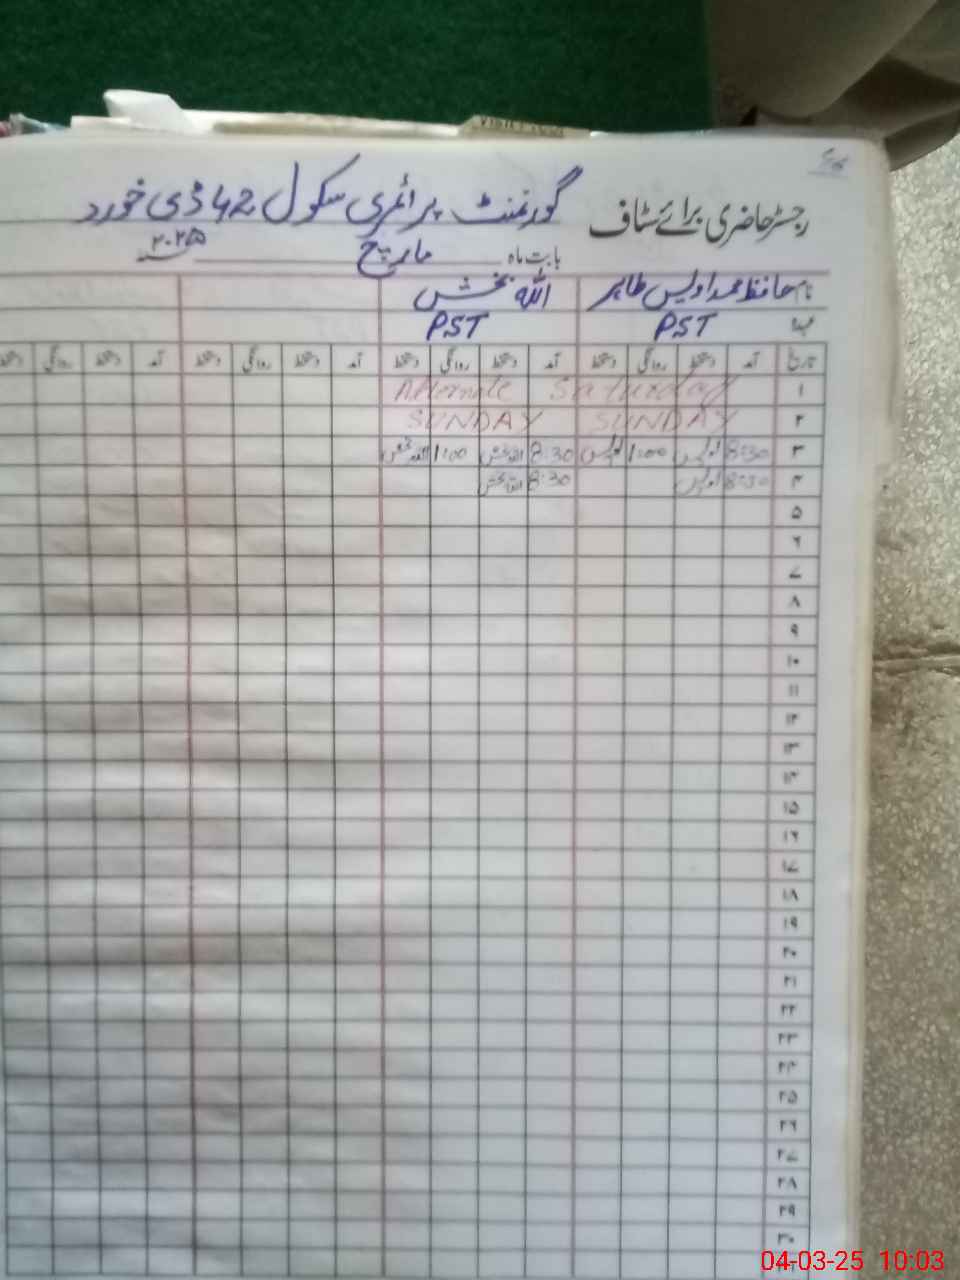 رجسٹر حاضری برائے سٹاف گورنمنٹ پرائمری سکول 42 ڈی خورد
بابت ماہ مارچ ۲۰۲۵
نام حافظ محمد اویس طاہر اللہ بخش
عہدہ PST PST
تاریخ آمد دستخط روانگی دستخط آمد دستخط روانگی دستخط آمد دستخط روانگی دستخط آمد دستخط روانگی دستخط
۱ Alternate Saturday
۲ SUNDAY SUNDAY
۳ 8:30 اویس 1:00 اویس 8:30 اللہ بخش 1:00 اللہ بخش
۴ 8:30 اویس 8:30 اللہ بخش
۵
۶
۷
۸
۹
۱۰
۱۱
۱۲
۱۳
۱۴
۱۵
۱۶
۱۷
۱۸
۱۹
۲۰
۲۱
۲۲
۲۳
۲۴
۲۵
۲۶
۲۷
۲۸
۲۹
۳۰
04-03-25 10:03